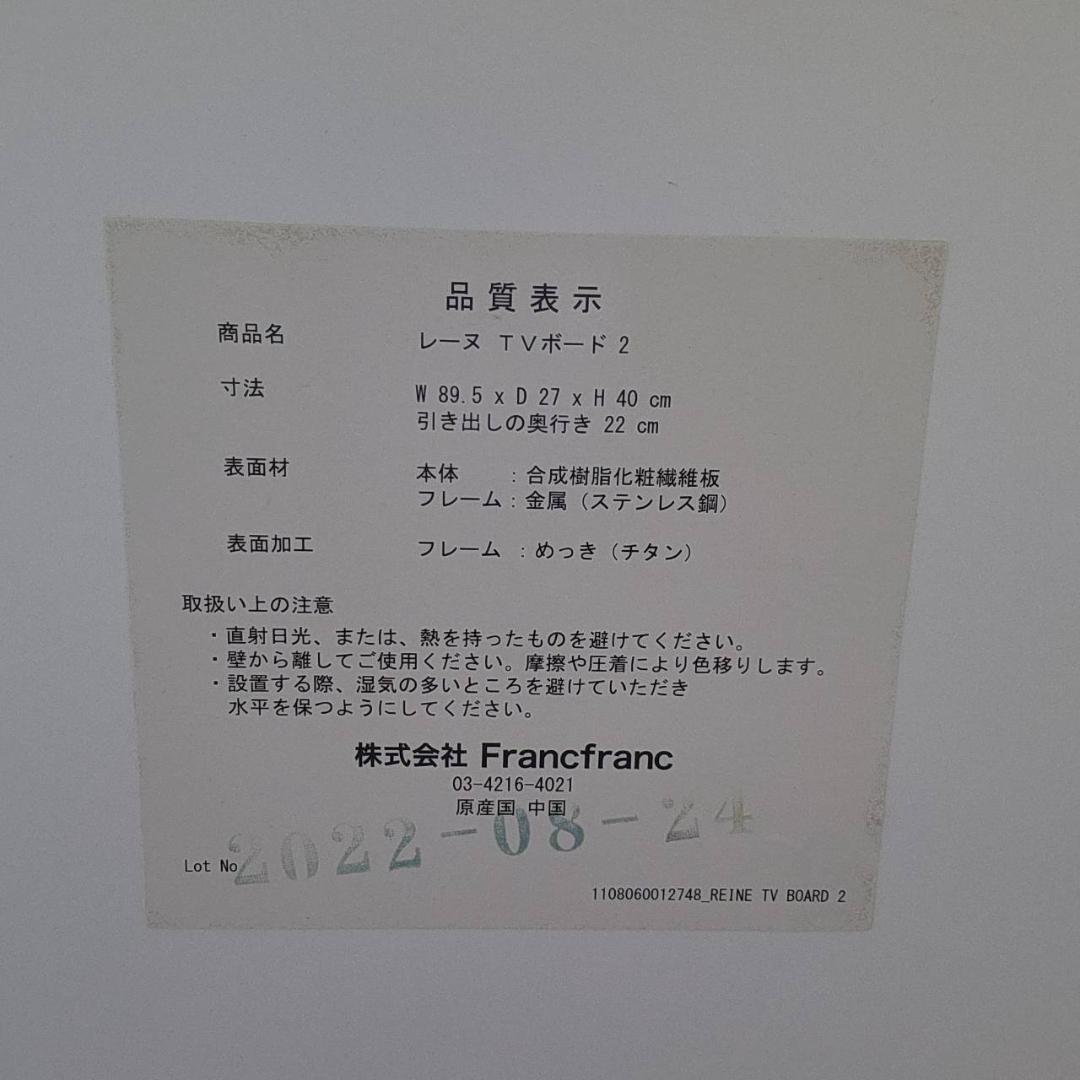 品質表示
商品名 レーヌ TVボード 2
寸法 W 89.5 x D 27 x H 40 cm
引き出しの奥行き 22 cm
表面材 本体 : 合成樹脂化粧繊維板
フレーム : 金属（ステンレス鋼）
表面加工 フレーム : めっき（チタン）
取扱い上の注意
・直射日光、または、熱を持ったものを避けてください。
・壁から離してご使用ください。摩擦や圧着により色移りします。
・設置する際、湿気の多いところを避けていただき
水平を保つようにしてください。
株式会社 Francfranc
03-4216-4021
原産国 中国
Lot No 2022-08-24
1108060012748_REINE TV BOARD 2